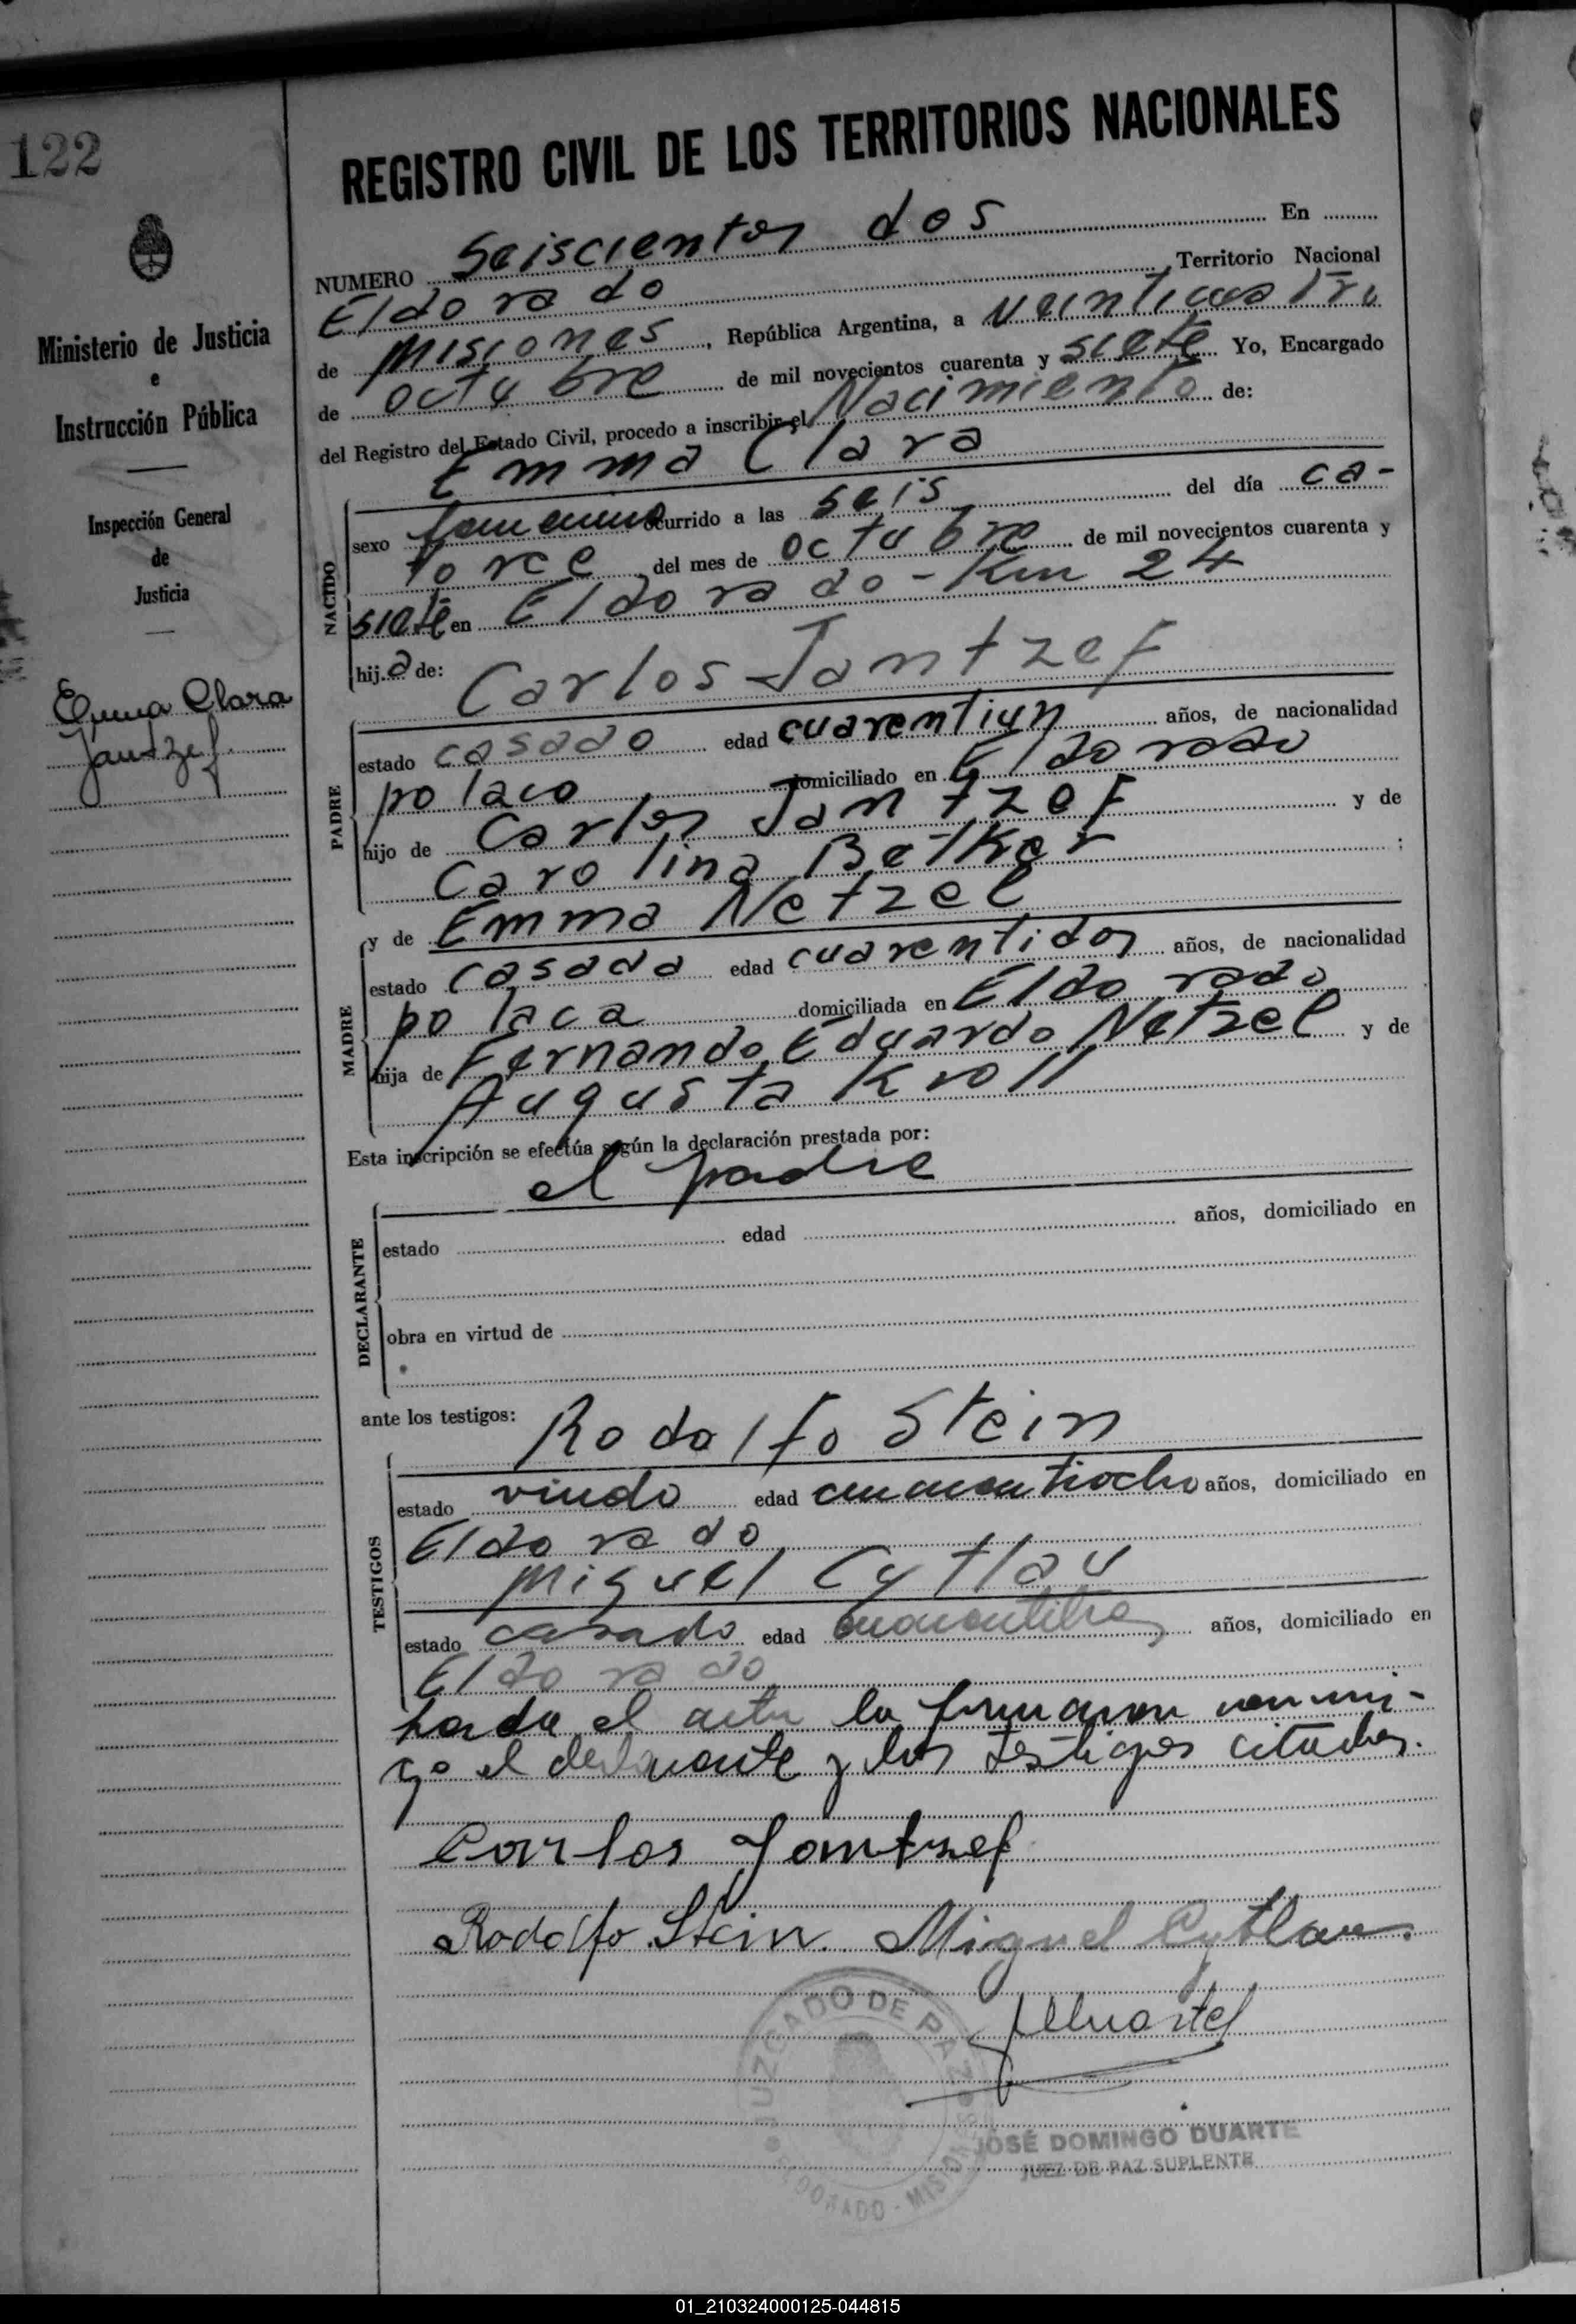 122
Ministerio de Justicia
e
Instrucción Pública
Inspección General
de
Justicia
Emma Clara
Jantzef
REGISTRO CIVIL DE LOS TERRITORIOS NACIONALES
NUMERO Seiscientos dos En
Eldorado Territorio Nacional
de Misiones, República Argentina, a Veinticuatro
de octubre de mil novecientos cuarenta y siete Yo, Encargado
del Registro del Estado Civil, procedo a inscribir el Nacimiento de:
Emma Clara
NACIDO
sexo femenino ocurrido a las seis del día ca-
torce del mes de octubre de mil novecientos cuarenta y
siete en Eldorado - Km 24
hija de: Carlos Jantzef
PADRE
estado casado edad cuarentiun años, de nacionalidad
polaco domiciliado en Eldorado
hijo de Carlos Jantzef y de
Carolina Betker ;
y de Emma Netzel
MADRE
estado casada edad cuarentidos años, de nacionalidad
polaca domiciliada en Eldorado
hija de Fernando Eduardo Netzel y de
Augusta Kroll
Esta inscripción se efectúa según la declaración prestada por:
el padre
DECLARANTE
estado edad años, domiciliado en
obra en virtud de
ante los testigos: Rodolfo Stein
TESTIGOS
estado viudo edad años, domiciliado en
Eldorado
Miguel Cytlau
estado casado edad cuarentitres años, domiciliado en
Eldorado
el acta la firmaron conmi-
go el declarante y los testigos citados.
Carlos Jantzef
Rodolfo Stein. Miguel Cytlau.
JUZGADO DE PAZ
ELDORADO - MISIONES
JOSÉ DOMINGO DUARTE
JUEZ DE PAZ SUPLENTE
01_210324000125-044815